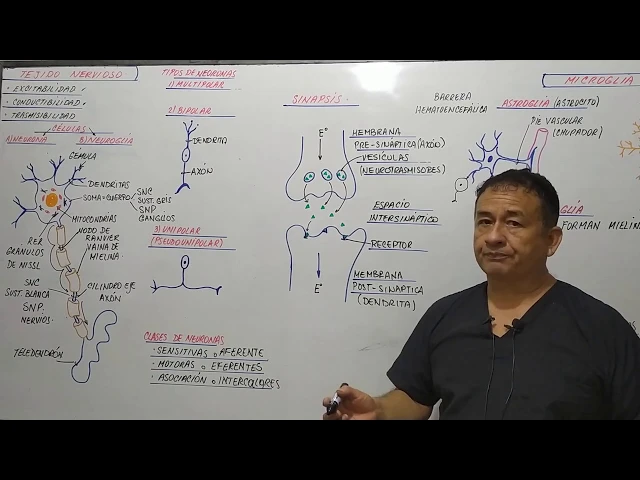 TEJIDO NERVIOSO
• EXCITABILIDAD
• CONDUCTIBILIDAD
• TRASMISIBILIDAD
CÉLULAS
A) NEURONA
B) NEUROGLÍA
GÉMULA
DENDRITAS
SOMA = CUERPO
SNC
SUST. GRIS
SNP
GANGLIOS
MITOCONDRIAS
NODO DE
RANVIER
VAINA DE
MIELINA
RER
GRANULOS
DE NISSL
SNC
SUST. BLANCA
SNP
NERVIOS
CILINDRO EJE
AXÓN
TELEDENDRÓN
TIPOS DE NEURONAS
1) MULTIPOLAR
2) BIPOLAR
DENDRITA
AXÓN
3) UNIPOLAR
(PSEUDOUNIPOLAR)
CLASES DE NEURONAS
• SENSITIVAS o AFERENTE
• MOTORAS o EFERENTES
• ASOCIACIÓN o INTERCALARES
SINAPSIS
E°
MEMBRANA
PRE-SINAPTICA (AXÓN)
VESICULAS
(NEUROTRASMISORES)
ESPACIO
INTERSINÁPTICO
RECEPTOR
E°
MEMBRANA
POST-SINAPTICA
(DENDRITA)
BARRERA
HEMATOENCEFÁLICA
ASTROGLIA (ASTROCITO)
PIE VASCULAR
(CHUPADOR)
MICROGLIA
GLÍA
FORMAN MIELINA